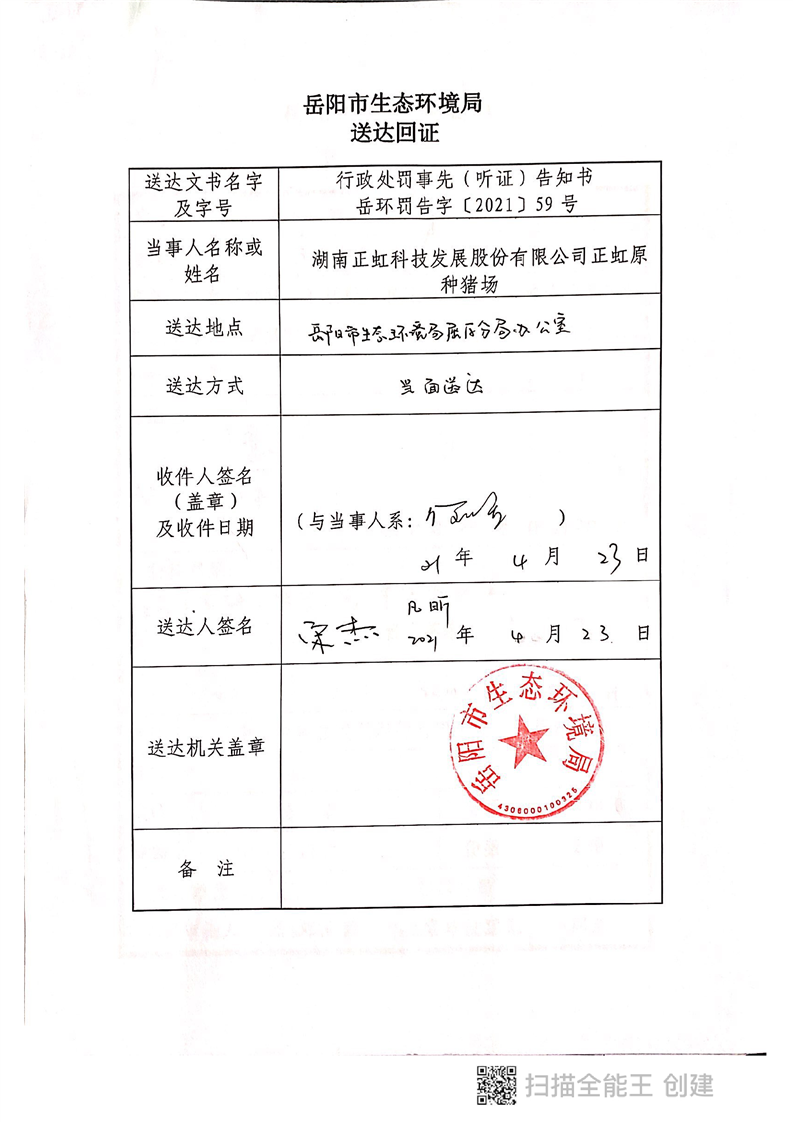 岳阳市生态环境局
送达回证
送达文书名字
及字号
行政处罚事先（听证）告知书
岳环罚告字〔2021〕59号
当事人名称或
姓名
湖南正虹科技发展股份有限公司正虹原
种猪场
送达地点
岳阳市生态环境局屈原分局办公室
送达方式
当面送达
收件人签名
（盖章）
及收件日期
（与当事人系： ）
21年 4月 23日
送达人签名
2021年 4月 23日
送达机关盖章
岳阳市生态环境局
4306000100325
备 注
扫描全能王 创建